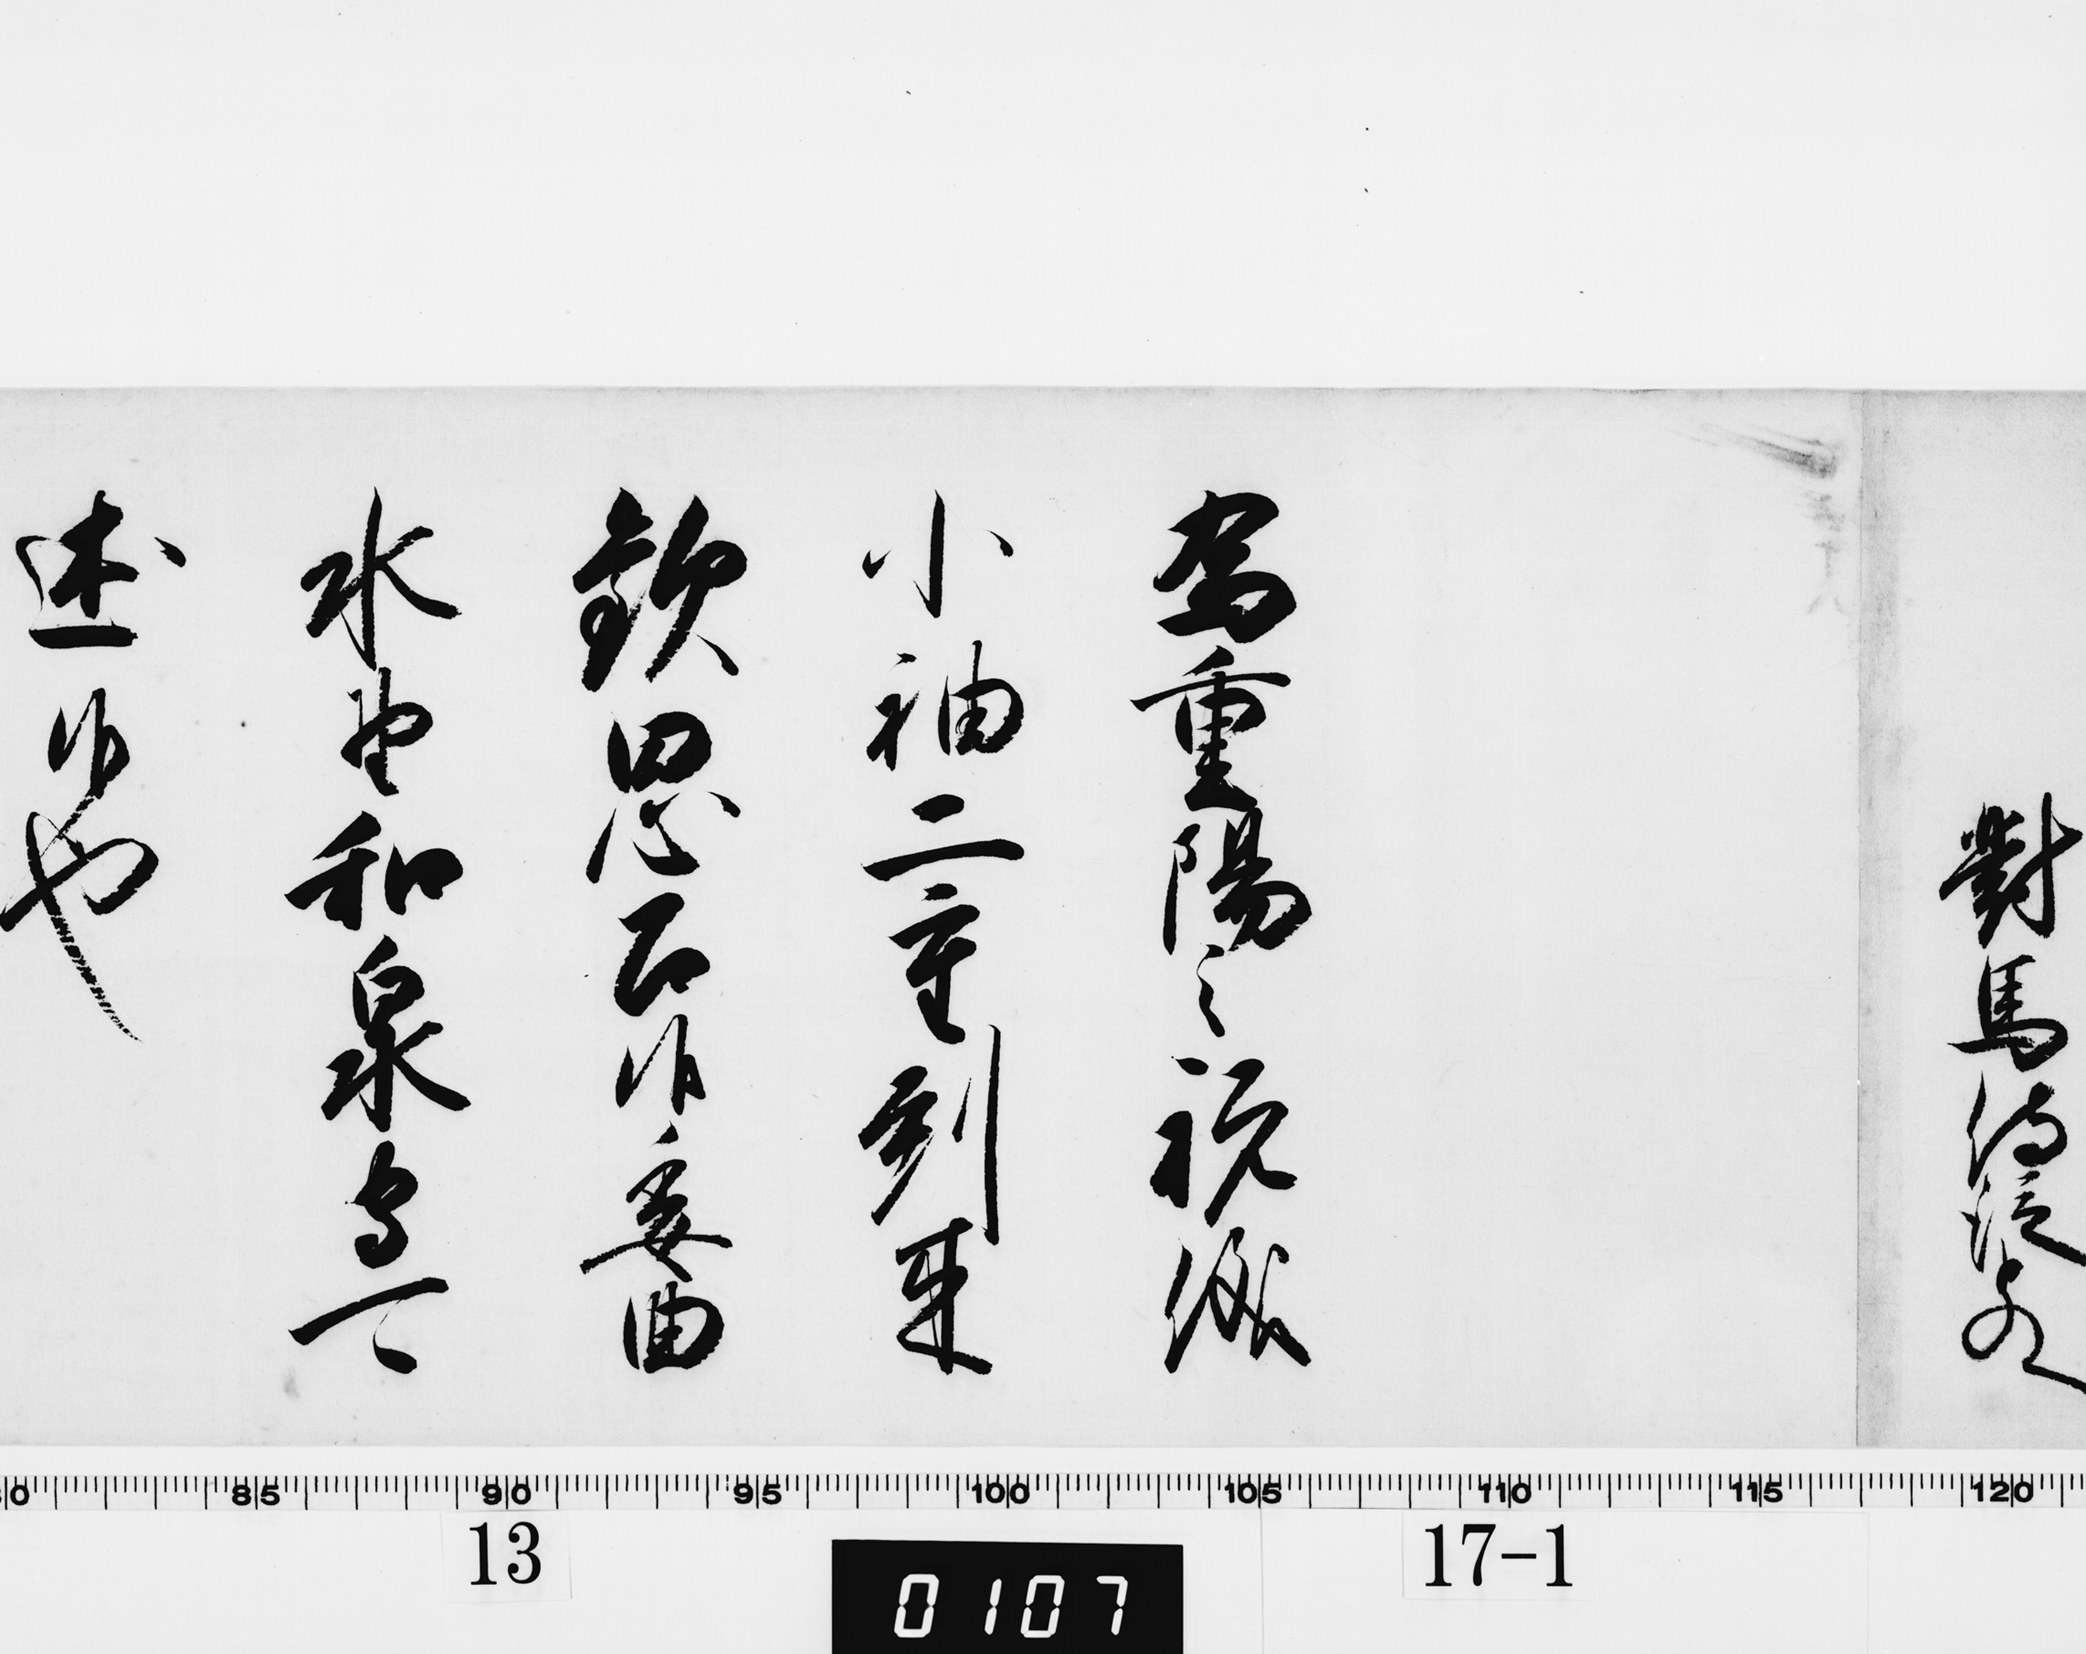 對馬侍従殿
為重陽之祝儀
小袖二重到来
歓思召候委曲
水野和泉守可
述候也
80 85 90 95 100 105 110 115 120
13
17-1
0107